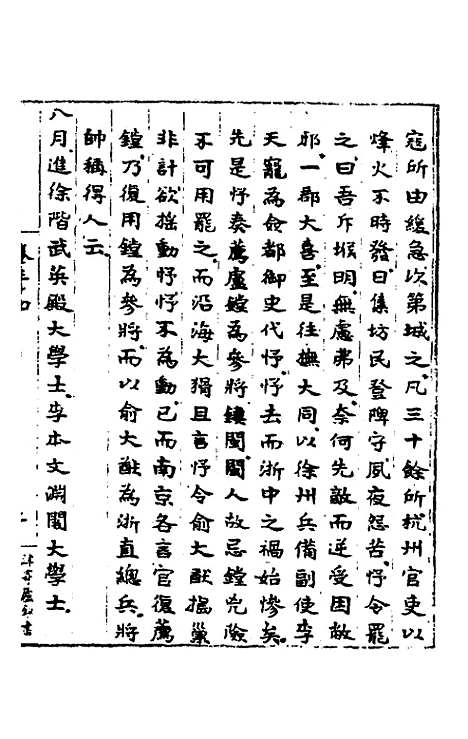 寇所由緩急次第城之凡三十餘所杭州官吏以
烽火不時發日集坊民登陴守夙夜怨苦忬令罷
之曰吾斥堠明無慮弗及奈何先敵而逆受困敝
邪一郡大喜至是往撫大同以徐州兵備副使李
天寵為僉都御史代忬忬去而浙中之禍始慘矣
先是忬奏薦盧鏜為參將鎮閩閩人故忌鏜兇險
不可用罷之而沿海大猾且言忬令俞大猷搗巢
非計欲搖動忬忬不為動已而南京各言官復薦
鏜乃復用鏜為參將而以俞大猷為浙直總兵將
帥稱得人云
八月進徐階武英殿大學士李本文淵閣大學士